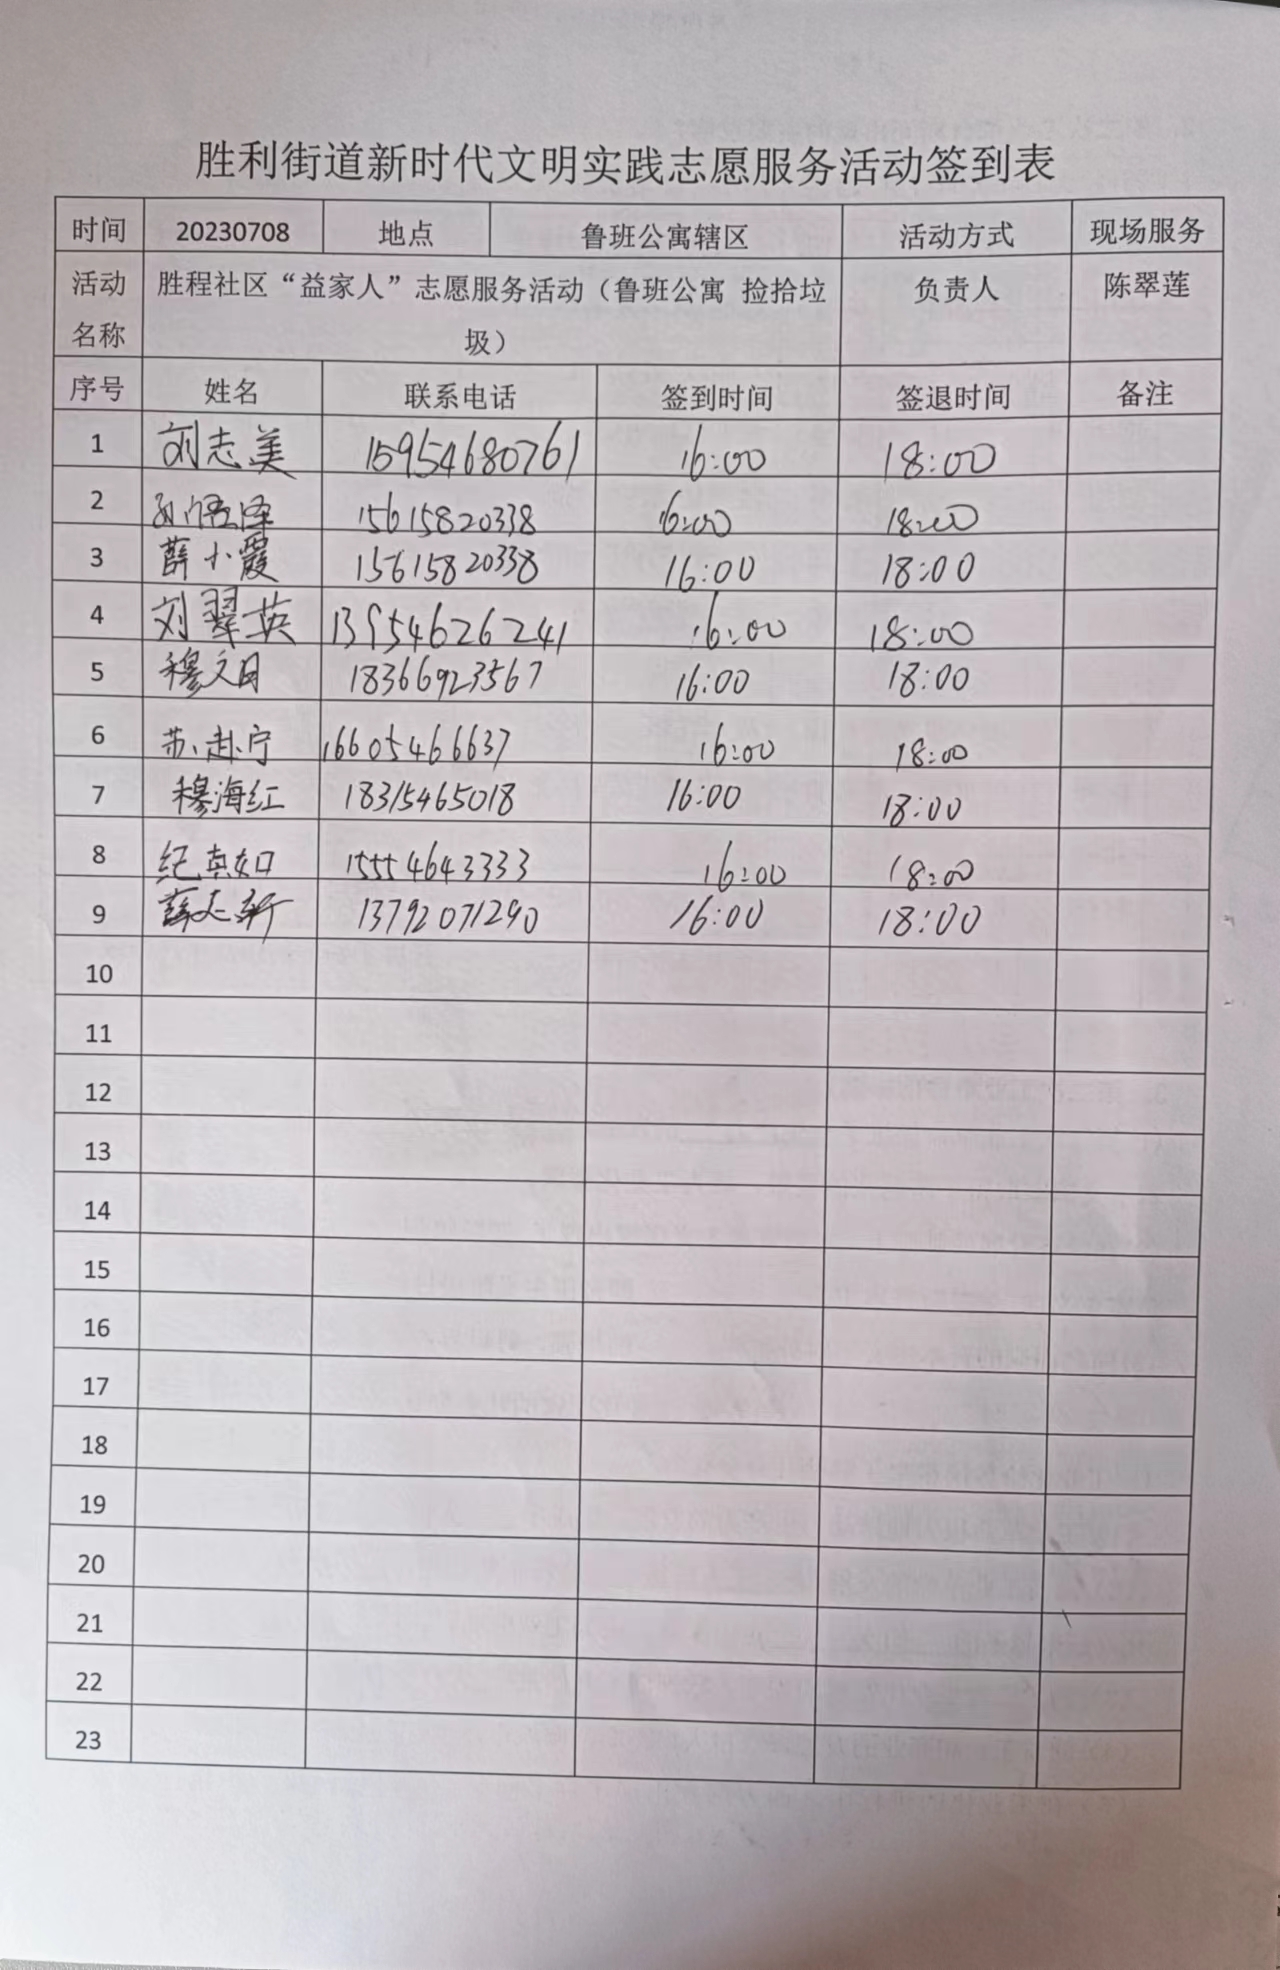 胜利街道新时代文明实践志愿服务活动签到表
时间 20230708 地点 鲁班公寓辖区 活动方式 现场服务
活动名称 胜程社区“益家人”志愿服务活动（鲁班公寓 捡拾垃圾） 负责人 陈翠莲
序号 姓名 联系电话 签到时间 签退时间 备注
1 刘志美 15954680761 16:00 18:00
2 15615820338 16:00 18:00
3 薛小霞 15615820338 16:00 18:00
4 刘翠英 13954626241 16:00 18:00
5 穆文月 18366923567 16:00 18:00
6 苏赴宁 16605466637 16:00 18:00
7 穆海红 18315465018 16:00 18:00
8 纪真如 15554643333 16:00 18:00
9 薛志新 13792071290 16:00 18:00
10
11
12
13
14
15
16
17
18
19
20
21
22
23